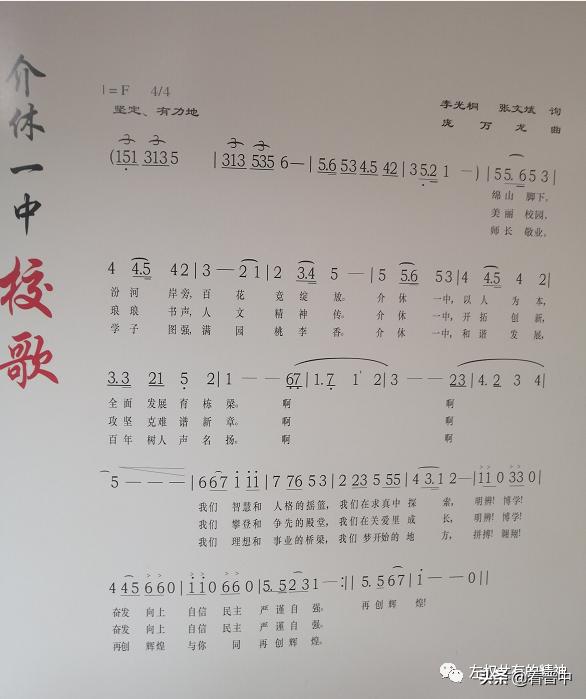 介休一中
校歌
1=F 4/4
坚定、有力地
李光桐 张文斌 词
庞万龙 曲
(151 3135 | 313 535 6— | 5.6 53 4.5 42 | 3 5.2 1 —) | 5 5. 6 5 3 |
绵山 脚下,
美丽 校园,
师长 敬业,
4 4.5 4 2 | 3 — 2 1 | 2 3.4 5 — | 5 5.6 5 3 | 4 4.5 4 2 |
汾河 岸旁,百 花 竞 绽 放。 介 休 一中,以 人 为 本,
琅琅 书声,人 文 精 神 传。 介 休 一中,开 拓 创 新,
学子 图强,满 园 桃 李 香。 介 休 一中,和 谐 发 展,
3.3 21 5 2 | 1 — — 67 | 1.7 1 2 | 3 — — 23 | 4. 2 3 4 |
全面 发展 育 栋 梁。 啊 啊
攻坚 克难 谱 新 章。 啊 啊
百年 树人 声 名 扬。 啊 啊
5 — — — | 6 67 1 11 | 7 76 5 3 | 2 23 5 55 | 4 3. 1 2— | 11 0 33 0 |
我们 智慧和 人格的摇篮, 我们在求真中 探 索, 明辨! 博学!
我们 攀登和 争先的殿堂, 我们在关爱里 成 长, 明辨! 博学!
我们 理想和 事业的桥梁, 我们 梦开始的 地 方, 拼搏! 翱翔!
4 45 660 | 11 0 660 | 5. 52 31 — :|| 5. 5 67 | 1 — — 0 ||
奋发 向上 自信 民主 严 谨 自 强。 再 创 辉 煌!
奋发 向上 自信 民主 严 谨 自 强。
再创 辉煌 与你 同 再 创 辉 煌。
左权共有的精神
头条 @看晋中